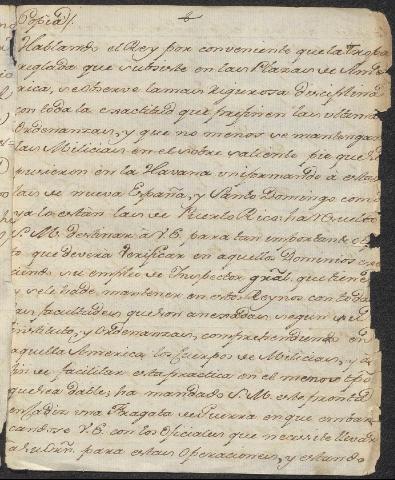 Copia //.
Hallando el Rey por conveniente que la Tropa
reglada que subsiste en las Plazas de Amé
rica, se observe la mas rigurosa disciplina
con toda la exactitud que prefinen las ultimas
Ordenanzas, y que no menos se mantengan
las Milicias en el sobresaliente pie que se
pusieron en la Havana uniformando á estas
las de nueva España, y Santo Domingo como
ya lo están las de Puerto Rico: ha resuelto
S. M. destinar á V.E. para tan importante obge
to que deverá verificar en aquellos Dominios exer
ciendo su empleo de Inspector gral. que tiene
y se le ha de mantener en estos Reynos con todas
las facultades que son anexsas, segun su
instituto, y Ordenanzas, comprehendiendo en
aquella America los Cuerpos de Milicias, y á
fin de facilitar esta práctica en el menos tpō
que sea dable; ha mandado S. M. este pronta
en Cadiz una Fragata de Guerra en que embar
candose V.E. con los Oficiales que necesite llevar
á su Orñ. para estas Operaciones, y estando